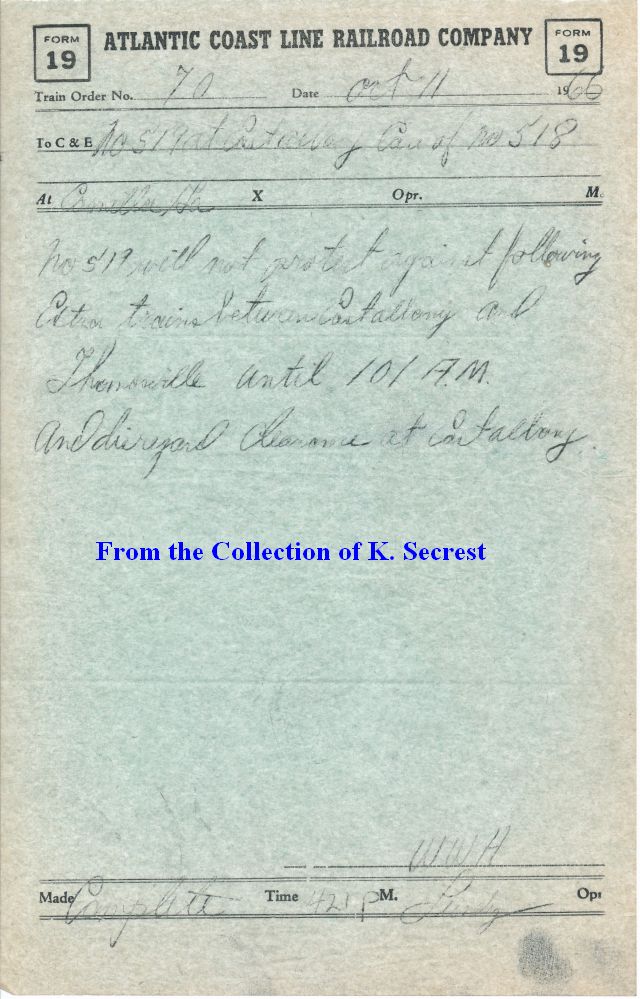 FORM 19 ATLANTIC COAST LINE RAILROAD COMPANY FORM 19
Train Order No. 70 Date Oct 11 1966
To C & E No 519 at East Albany Care of No 518
At Ga X Opr. M.
No 519 will not protect against following
Extra trains between East Albany and
Thomasville until 101 A.M.
And disregard Clearance at East Albany.
From the Collection of K. Secrest
WWH
Made Complete Time 421 P M. Opr